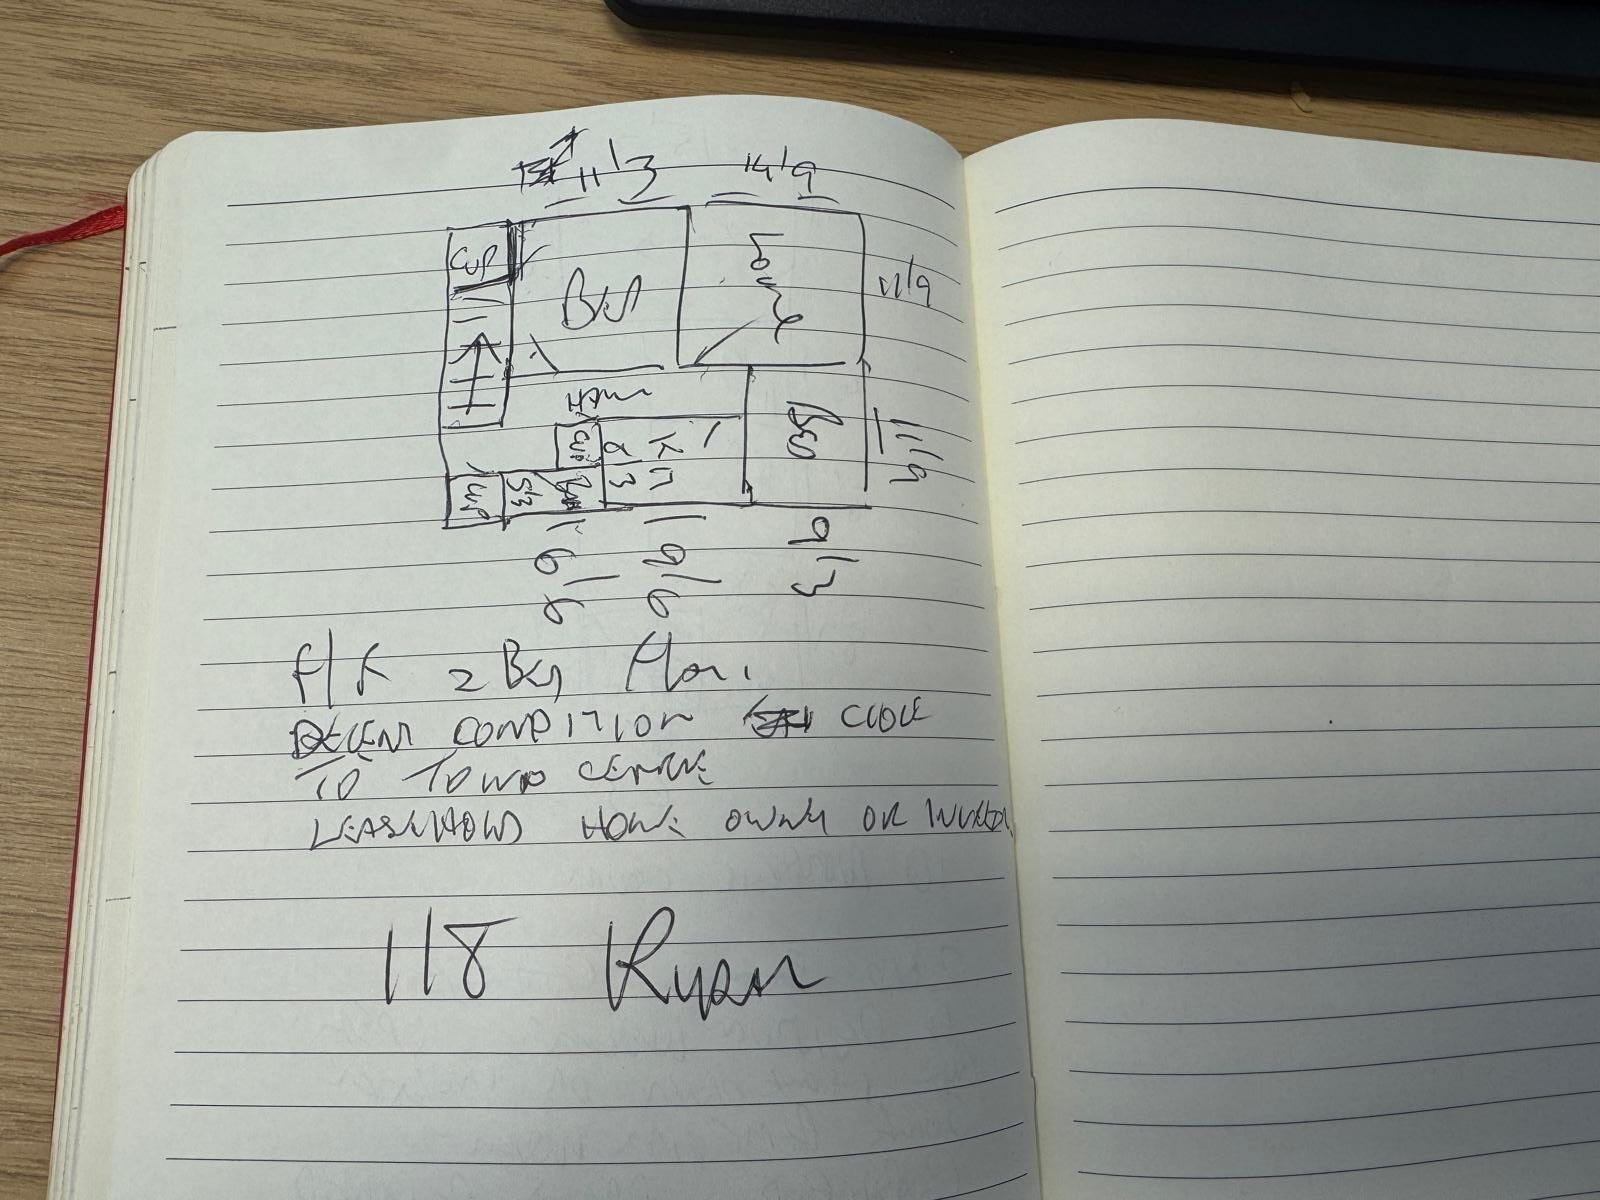 11'3 14'9
CUP
BED
Lounge
11'9
HALL
BED
11'9
CUP
KIT
8'3
CUP
5'3
6'6
9'6
9'3
F/F 2 BED Flat.
DECENT CONDITION CLOSE
TO TOWN CENTRE
LEASEHOLD HOME OWNER OR INVESTOR.
118 Ryan